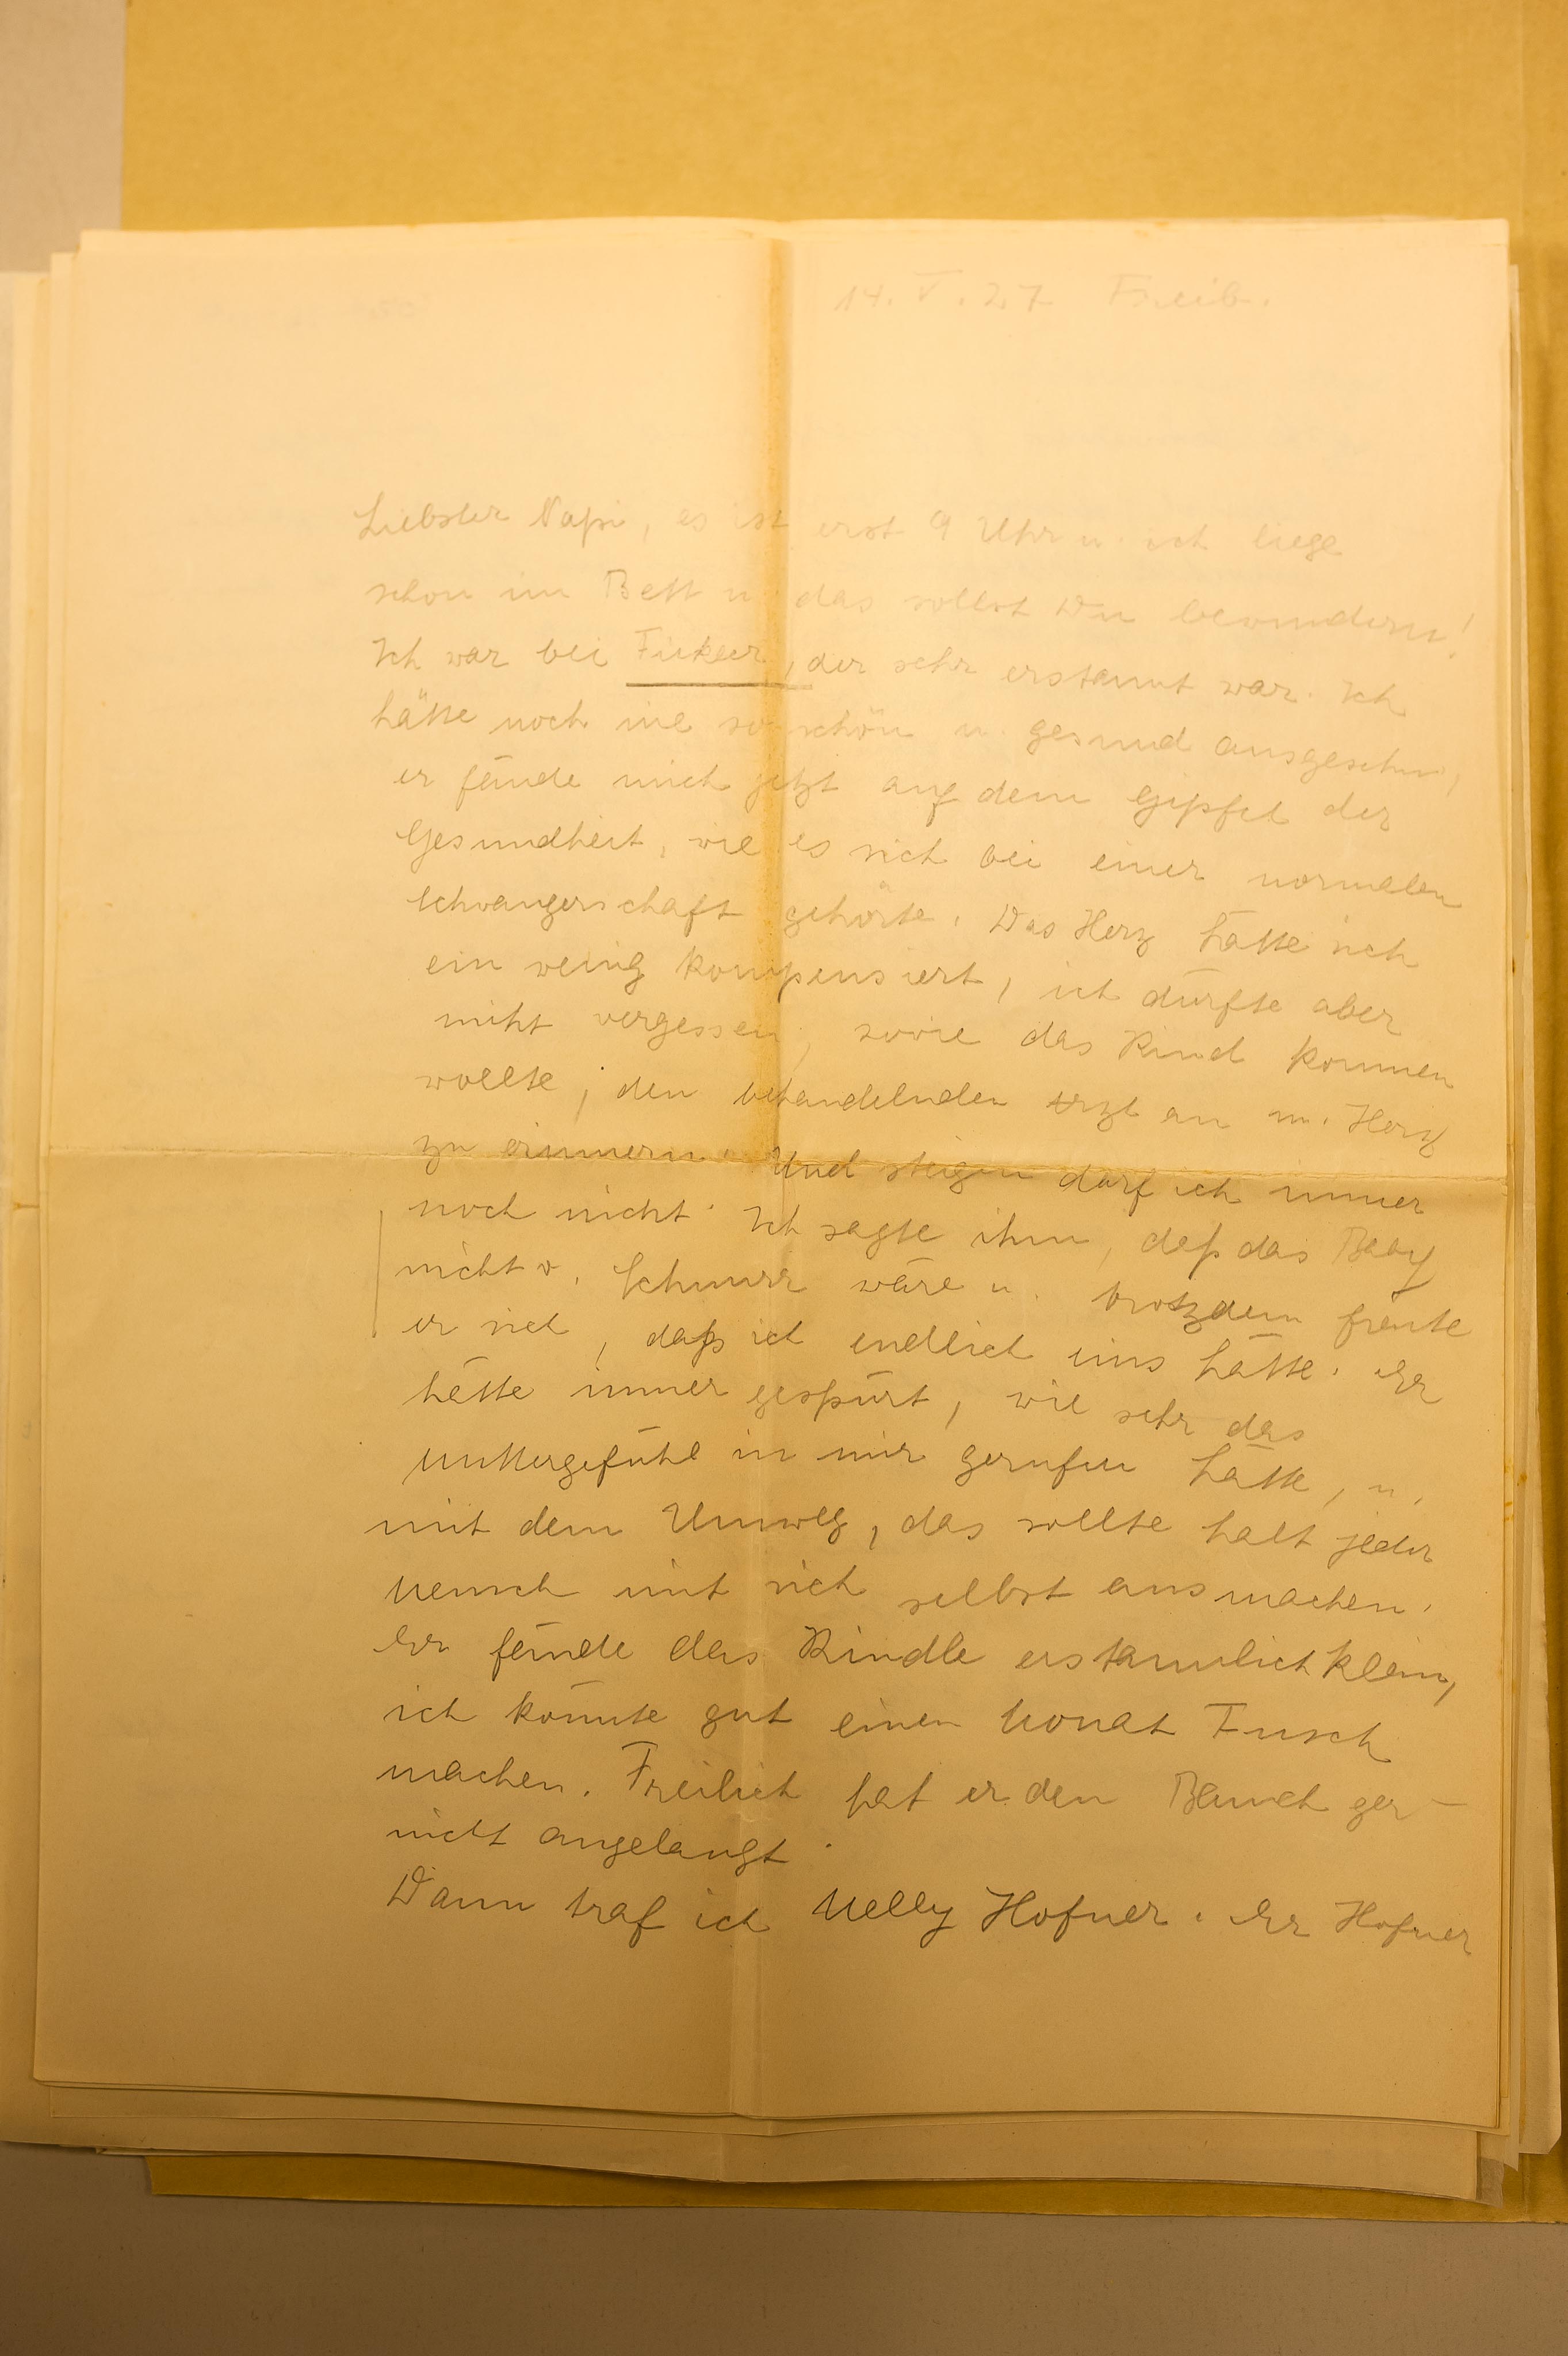 14. V. 27 Freib.
Liebster Papi, es ist erst 9 Uhr u. ich liege
schon im Bett u. das sollst Du bewundern!
Ich war bei , der sehr erstaunt war. Ich
hätte noch nie so schön u. gesund ausgesehn,
er fände mich jetzt auf dem Gipfel der
Gesundheit, wie es sich bei einer normalen
Schwangerschaft gehörte. Das Herz hätte sich
ein wenig kompensiert, ich dürfte aber
nicht vergessen, sowie das Kind kommen
wollte, den behandelnden Arzt an m. Herz
zu erinnern. Und steigen darf ich immer
noch nicht. Ich sagte ihm, daß das Baby
nicht v. Schnurr wäre u. trotzdem freute
er sich, daß ich endlich eins hätte. Er
hätte immer gespürt, wie sehr das
Muttergefühl in mir gerufen hätte, u.
mit dem Umweg, das sollte halt jeder
Mensch mit sich selbst ausmachen.
Er fände das Kindle erstaunlich klein,
ich könnte gut einen Monat Fusch
machen. Freilich hat er den Bauch gar
nicht angelangt.
Dann traf ich Nelly Hofner. Er Hofner